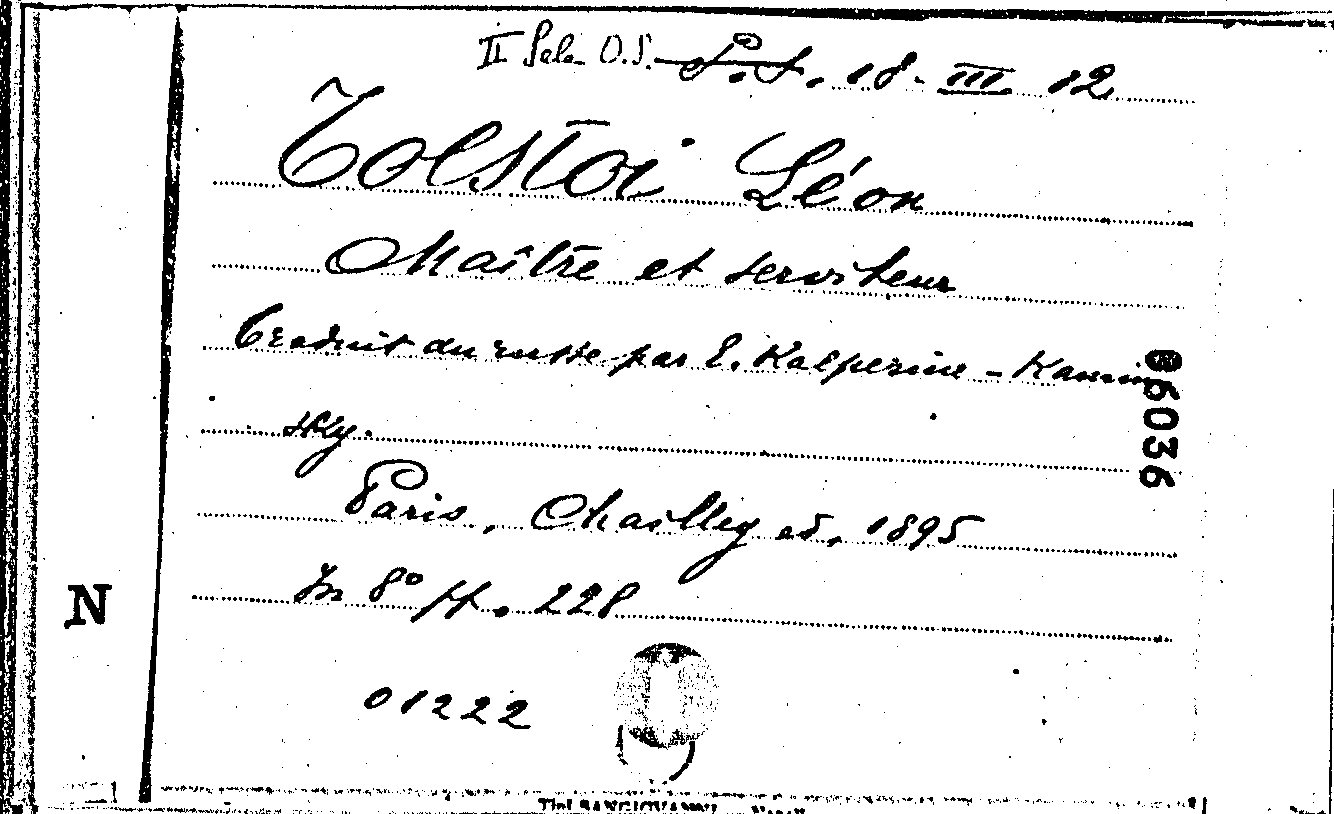 II Sala O.S. S.S. 18 - III. 12
Tolstoi Léon
Maître et serviteur
Traduit du russe par E. Halperine - Kamin
sky.
Paris, Chailley ed, 1895
In 8° pp. 228
66036
N
01222